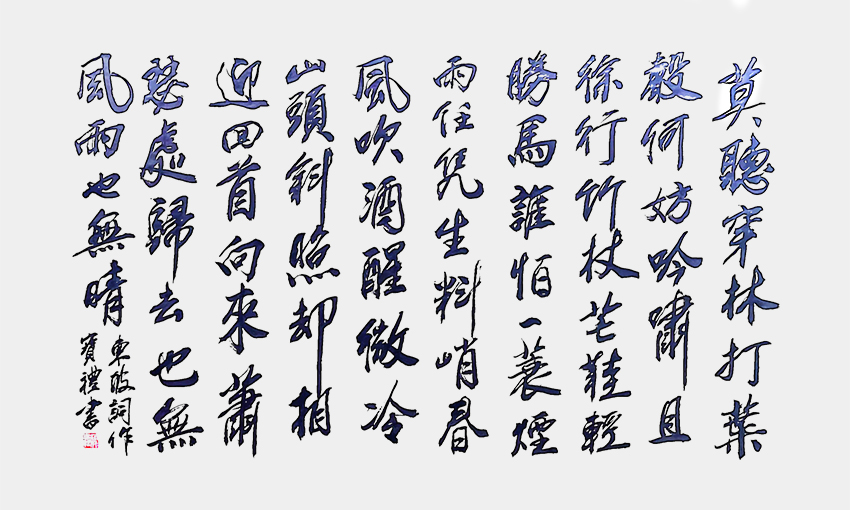 莫聽穿林打葉
聲何妨吟嘯且
徐行竹杖芒鞋輕
勝馬誰怕一蓑煙
雨任凭生料峭春
風吹酒醒微冷
山頭斜照却相
迎回首向來蕭
愁處歸去也無
風雨也無晴
東坡詞作
寶禮書